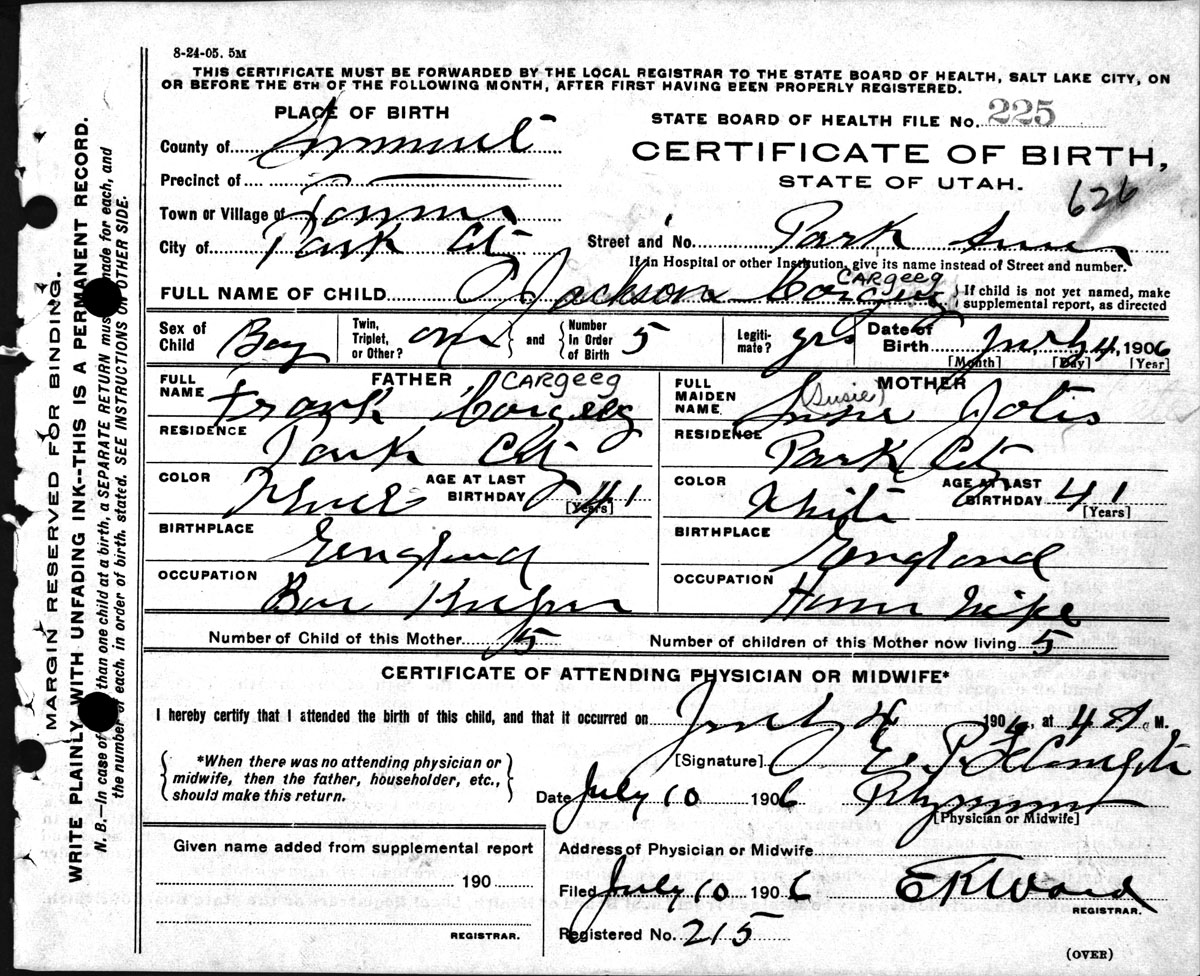 8-24-05. 5M
THIS CERTIFICATE MUST BE FORWARDED BY THE LOCAL REGISTRAR TO THE STATE BOARD OF HEALTH, SALT LAKE CITY, ON
OR BEFORE THE 5TH OF THE FOLLOWING MONTH, AFTER FIRST HAVING BEEN PROPERLY REGISTERED.
PLACE OF BIRTH
STATE BOARD OF HEALTH FILE No. 225
County of Summit
CERTIFICATE OF BIRTH,
STATE OF UTAH.
626
Precinct of
Town or Village of
City of Park City
Street and No. Park
If in Hospital or other Institution, give its name instead of Street and number.
CARGEEG
FULL NAME OF CHILD Jackson
If child is not yet named, make supplemental report, as directed
Sex of Child Boy
Twin, Triplet, or Other?
and Number In Order of Birth 5
Legitimate? yes
Date of Birth July 4, 1906
[Month] [Day] [Year]
FATHER CARGEEG
FULL NAME Frank
RESIDENCE Park City
COLOR White AGE AT LAST BIRTHDAY 41
[Years]
BIRTHPLACE England
OCCUPATION Bar Keeper
MOTHER
(Susie)
FULL MAIDEN NAME
RESIDENCE Park City
COLOR White AGE AT LAST BIRTHDAY 41
[Years]
BIRTHPLACE England
OCCUPATION House Wife
Number of Child of this Mother 5 Number of children of this Mother now living 5
CERTIFICATE OF ATTENDING PHYSICIAN OR MIDWIFE*
I hereby certify that I attended the birth of this child, and that it occurred on July 4 1906, at 4 A. M.
*When there was no attending physician or
midwife, then the father, householder, etc.,
should make this return.
[Signature]
Date July 10 1906
[Physician or Midwife]
Given name added from supplemental report
190
REGISTRAR.
Address of Physician or Midwife
Filed July 10 1906 Ward
REGISTRAR.
Registered No. 215
(OVER)
MARGIN RESERVED FOR BINDING.
WRITE PLAINLY WITH UNFADING INK--THIS IS A PERMANENT RECORD.
N. B.—In case of than one child at a birth, a SEPARATE RETURN must made for each, and
the number of each, in order of birth, stated. SEE INSTRUCTIONS ON OTHER SIDE.